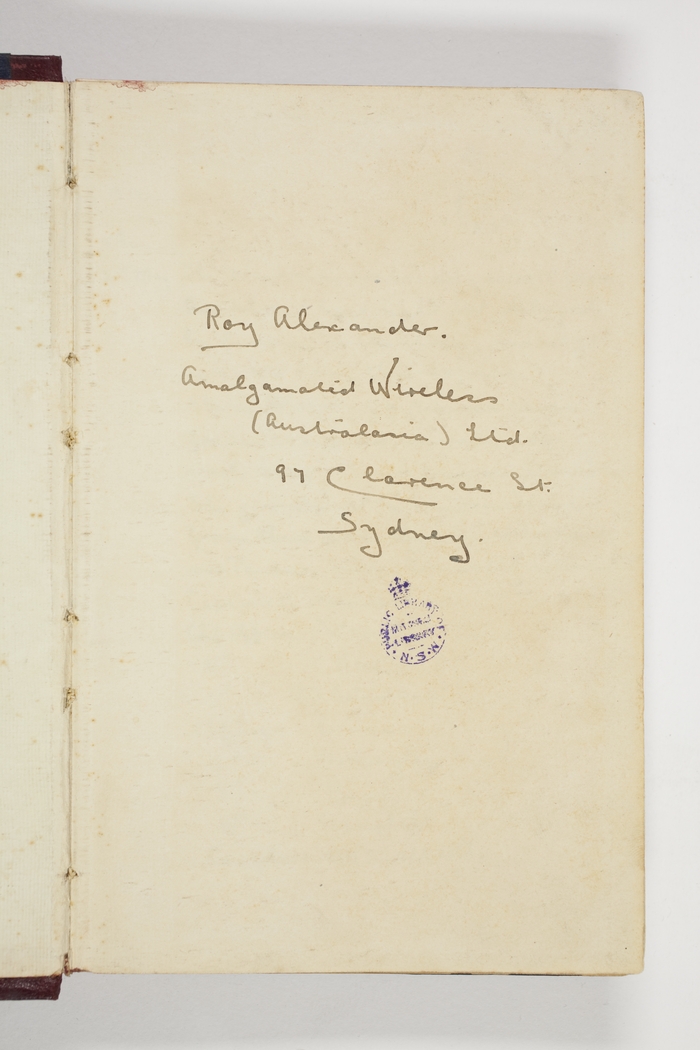 Roy Alexander.
Amalgamated Wireless
(Australasia) Ltd.
97 Clarence St.
Sydney.
PUBLIC LIBRARY OF N.S.W.
MITCHELL
LIBRARY